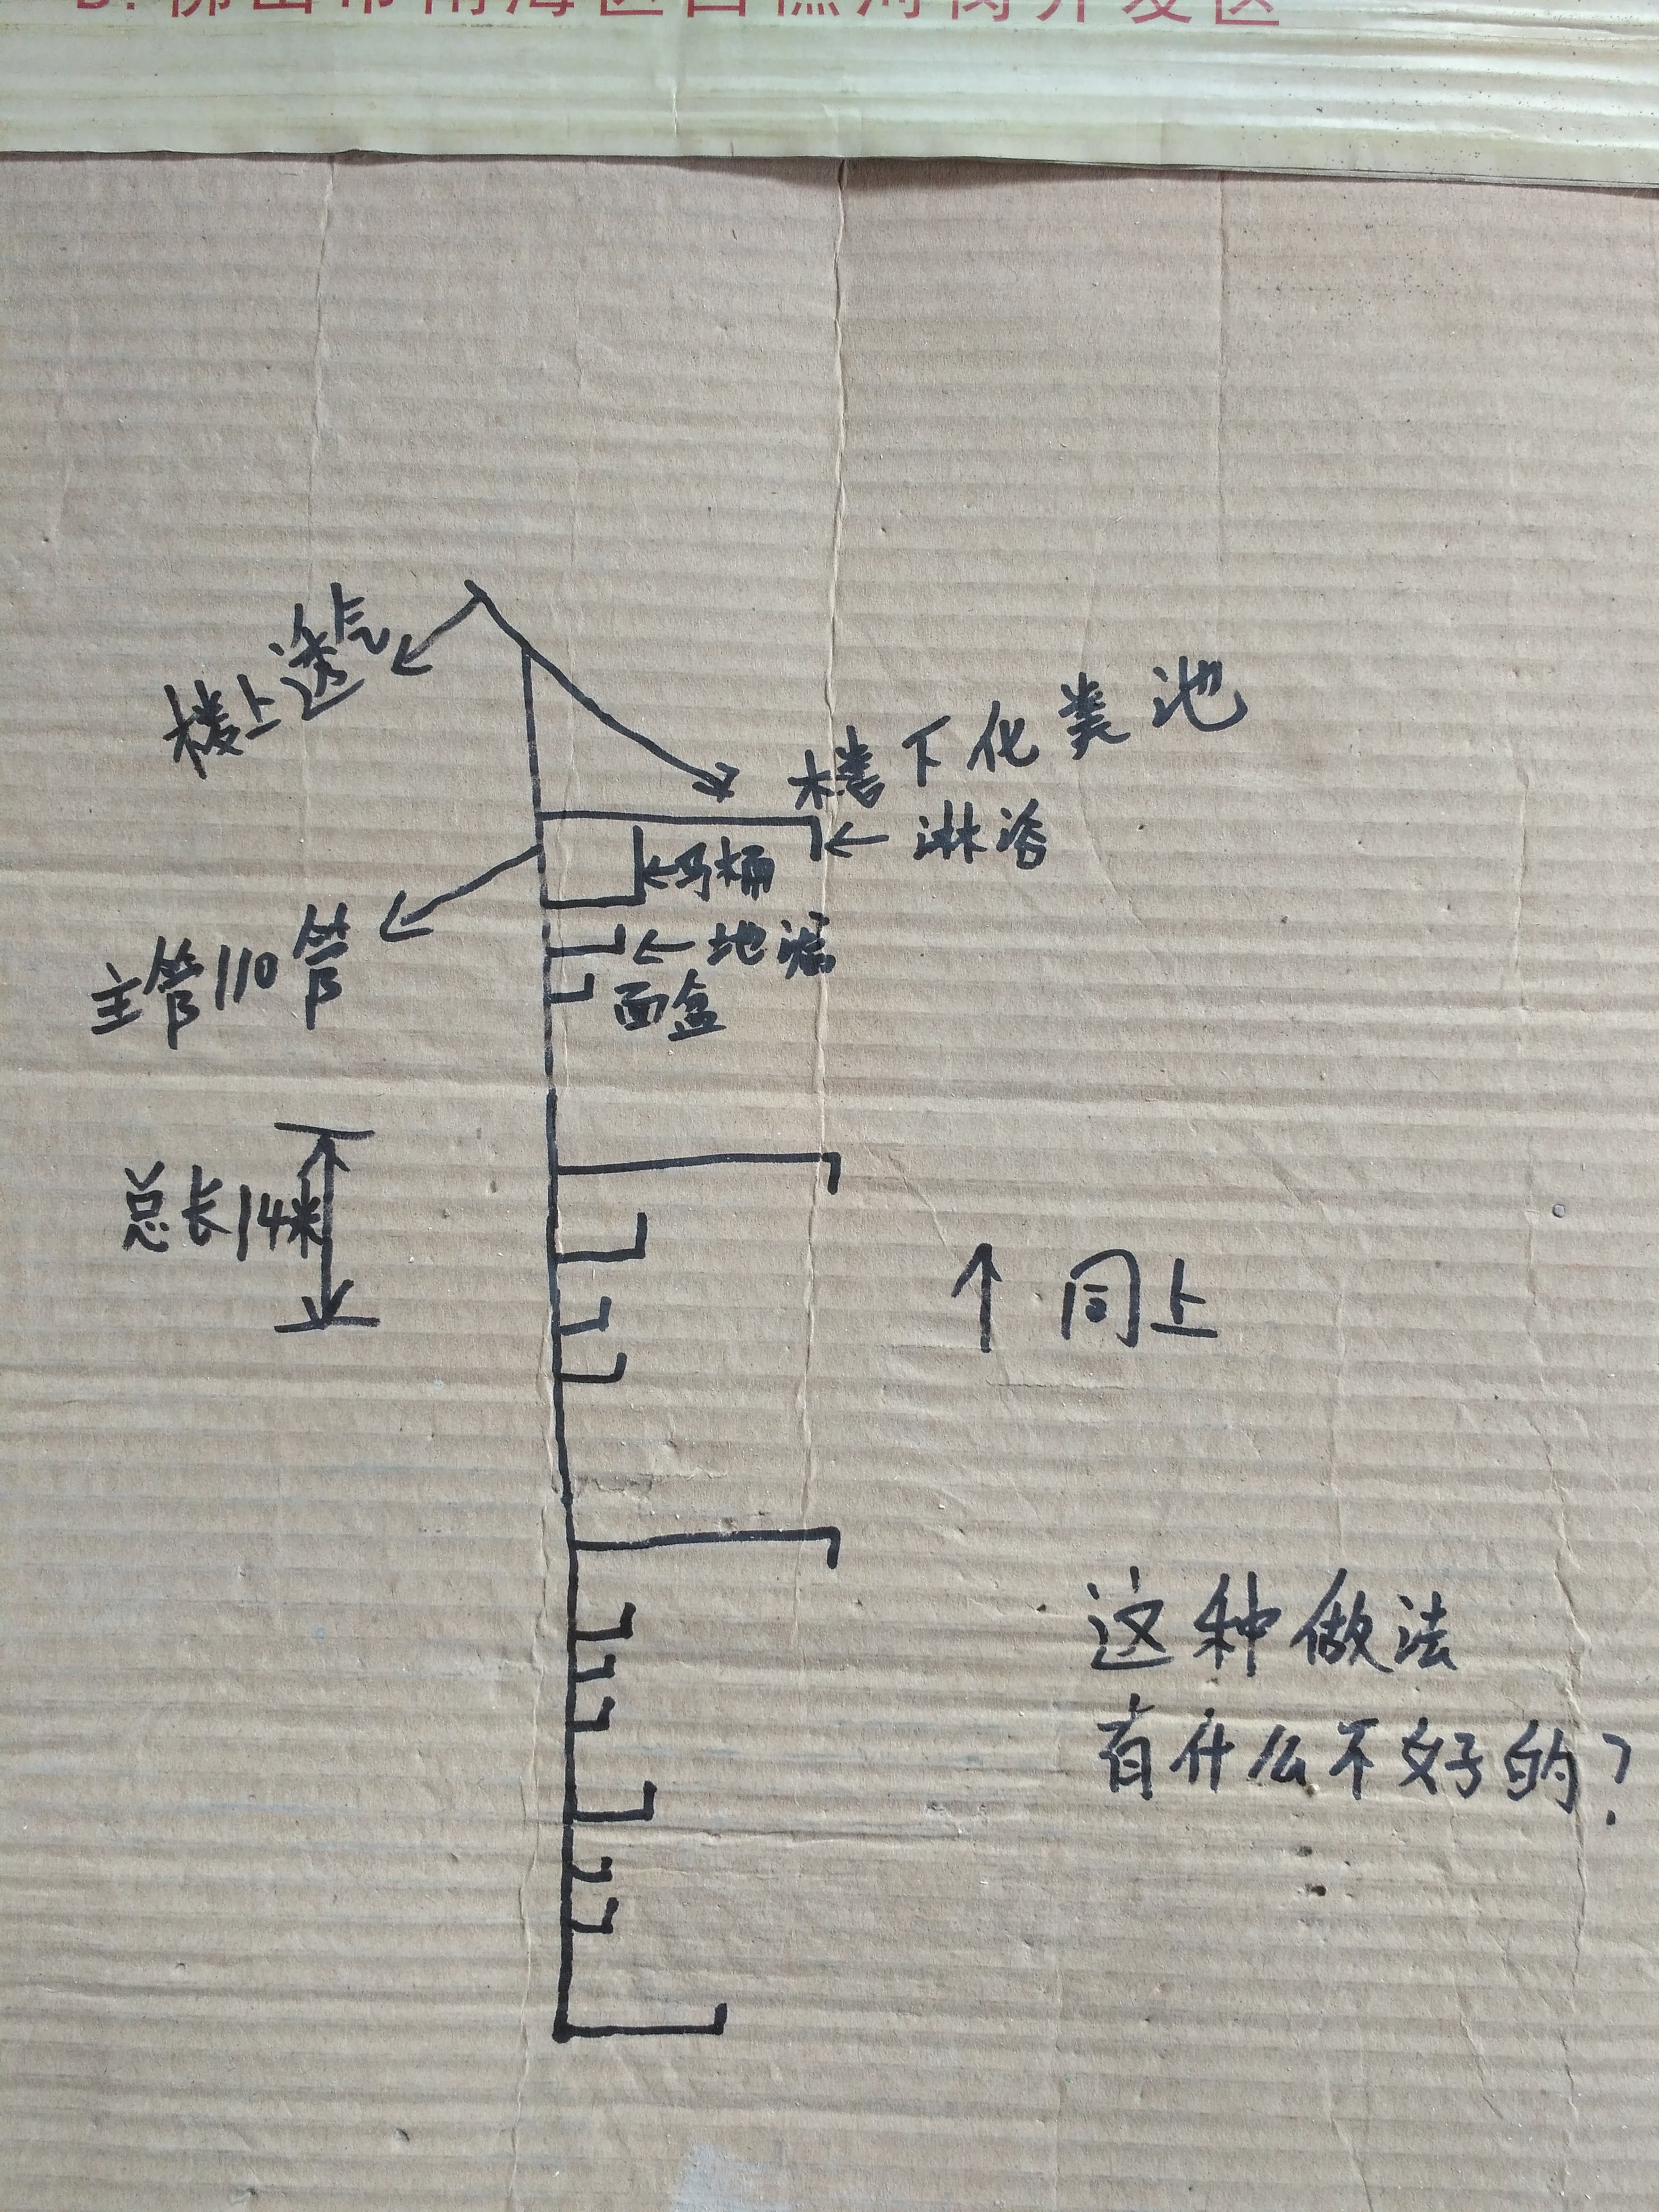 佛山市南海区西樵河岗开发区
楼上透气
楼下化粪池
淋浴
马桶
地漏
面盆
主管110管
总长14米
↑同上
这种做法
有什么不好的?